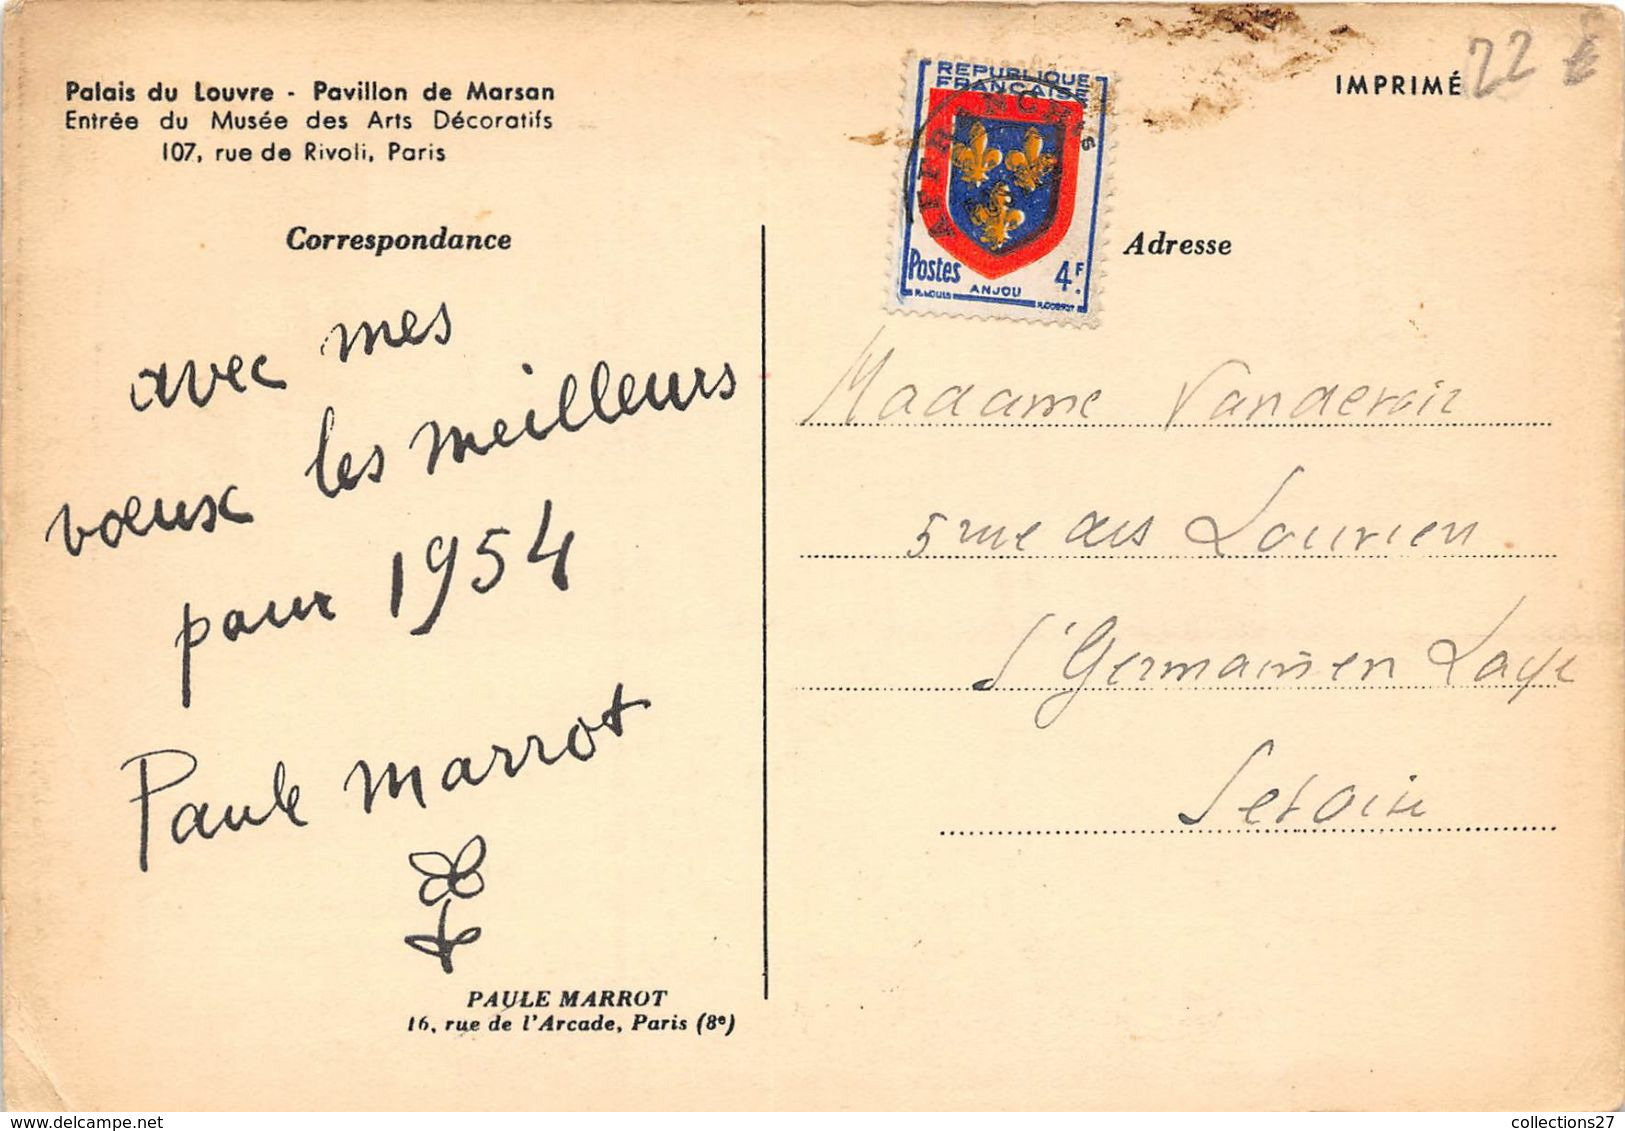 Palais du Louvre - Pavillon de Marsan
Entrée du Musée des Arts Décoratifs
107, rue de Rivoli, Paris
Correspondance
avec mes
vœux les meilleurs
pour 1954
Paule Marrot
PAULE MARROT
16, rue de l'Arcade, Paris (8e)
REPUBLIQUE
FRANÇAISE
AFFRANCHts
POSTES
Postes 4F.
ANJOU
IMPRIMÉ
22 €
Adresse
Madame
5 rue des
St Germain en Laye
collections27